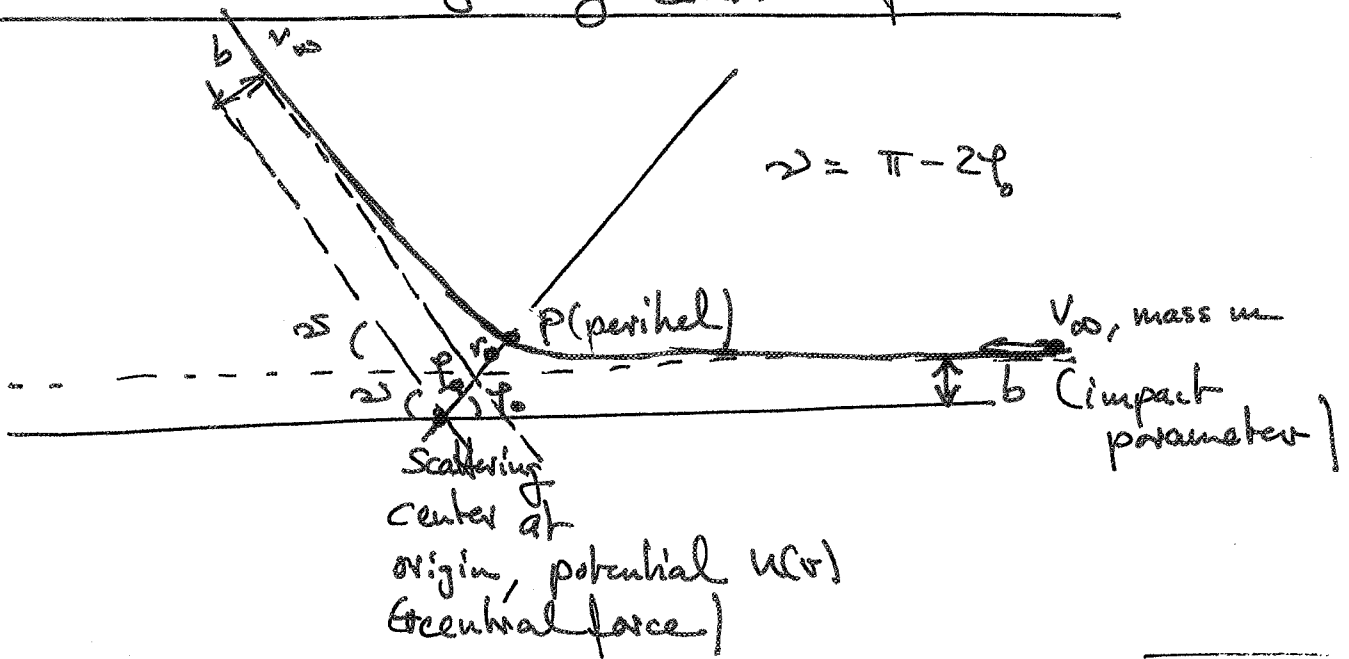 b v∞
ϑ = π - 2φ₀
P(perihel)
v∞, mass m
ϑ
r₀
b (impact
parameter)
ϑ φ₀ φ₀
Scattering
center at
origin, potential U(r)
central force)